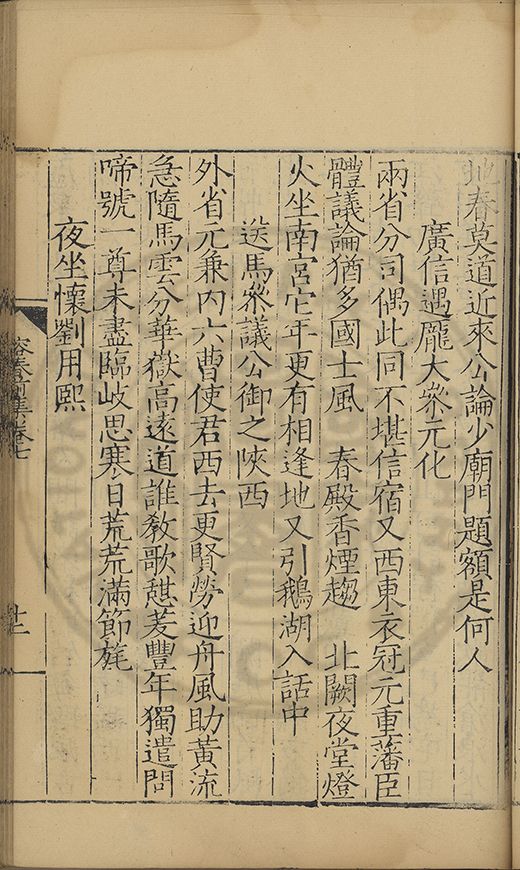 地春莫道近來公論少廟門題額是何人
廣信遇龎大叅元化
兩省分司偶此同不堪信宿又西東衣冠元重藩臣
體議論猶多國士風 春殿香煙趨 北闕夜堂燈
火坐南宮它年更有相逢地又引鵝湖入話中
送馬叅議公御之陝西
外省元兼内六曹使君西去更賢勞迎舟風助黃流
急隨馬雲分華嶽高遠道誰敎歌憇茇豐年獨遣問
啼號一尊未盡臨岐思寒日荒荒滿節旄
夜坐懷劉用熙
容春前集卷七
十二